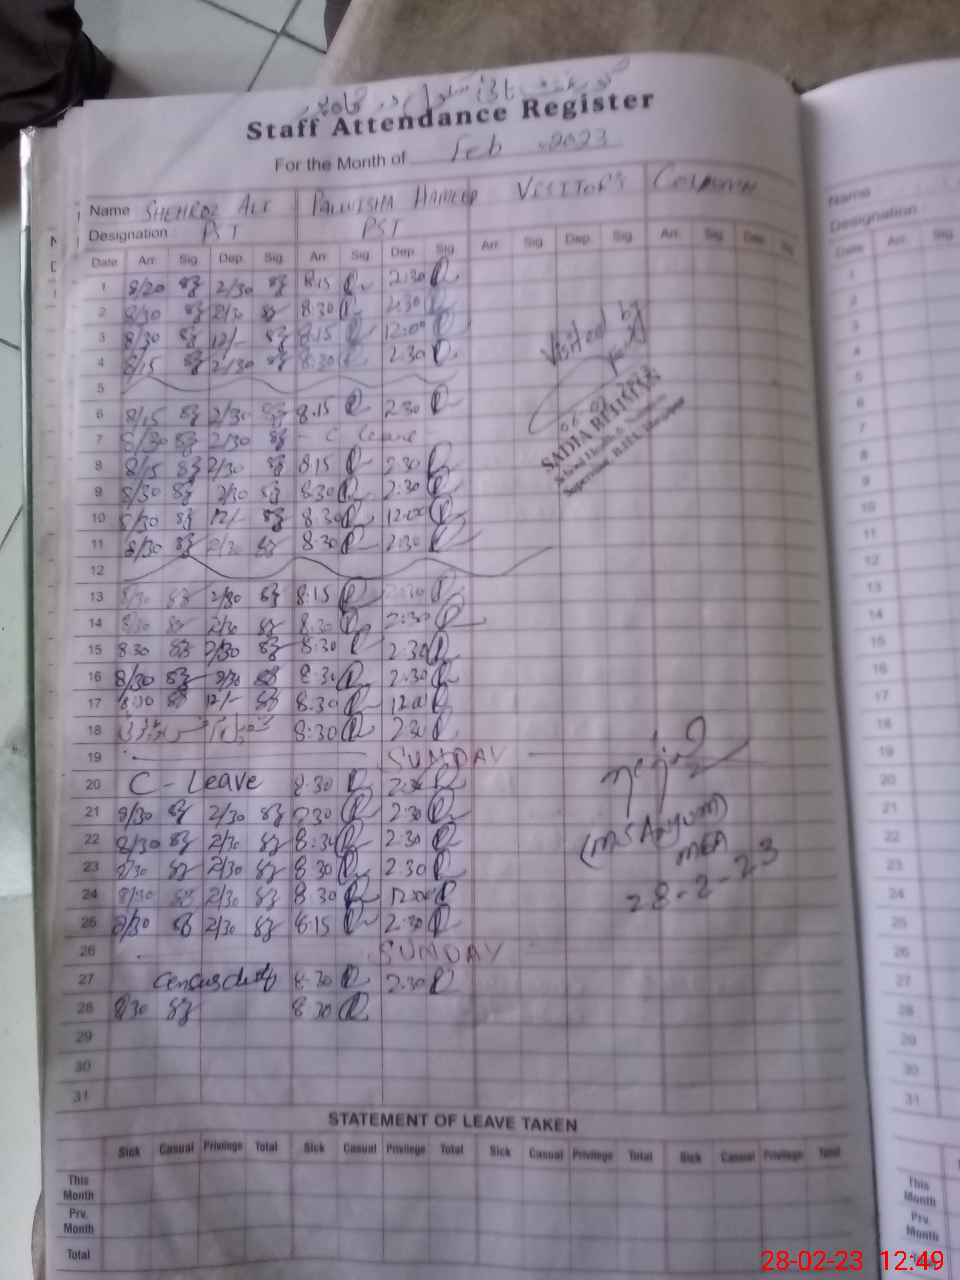 Staff Attendance Register
For the Month of Feb 2023
Name SHEHROZ ALI PALWISHA HAMEED VISITOR'S COLOUMN
Designation PST
Date Arr. Sig. Dep. Sig. Arr. Sig. Dep. Sig. Arr. Sig. Dep. Sig. Arr. Sig. Dep. Sig.
1 8/20 2/30 8.15 2.30
2 8/30 2/30 8.30 2.30
3 8/30 12/- 8.15 12:00
4 8/15 2/30 8:30 2.30
Visited by
5
6 8/15 2/30 8.15 2.30
7 8/30 2/30 - C leave -
SADIA
8 8/15 2/30 8.15 2.30
9 8/30 2/30 8.30 2.30
10 8/30 12/- 8.30 12:00
11 8/30 2/30 8.30 2.30
12
13 8/30 2/30 8.15 2.30
14 8/30 2/30 8.30 2:30
15 8.30 2/30 8.30 2.30
16 8/30 2/30 8.30 2.30
17 8:30 12/- 8.30 12.00
18 8:30 2.30
19 SUNDAY
20 C - Leave 8.30 2.30
21 8/30 2/30 8.30 2.30
22 8/30 2/30 8:30 2.30
(MS Anyum)
23 8/30 2/30 8.30 2.30
MEA
24 8/30 2/30 8.30 12:00
28-2-23
25 8/30 2/30 8.15 2.30
26 SUNDAY
27 Census duty 8.30 2.30
28 8/30 8.30
29
30
31
STATEMENT OF LEAVE TAKEN
Sick Casual Privilege Total Sick Casual Privilege Total Sick Casual Privilege Total Sick Casual Privilege Total
This Month
Prv. Month
Total
Name
Designation
Date Arr. Sig.
1
2
3
4
5
6
7
8
9
10
11
12
13
14
15
16
17
18
19
20
21
22
23
24
25
26
27
28
29
30
31
This Month
Prv. Month
Total
28-02-23 12:49